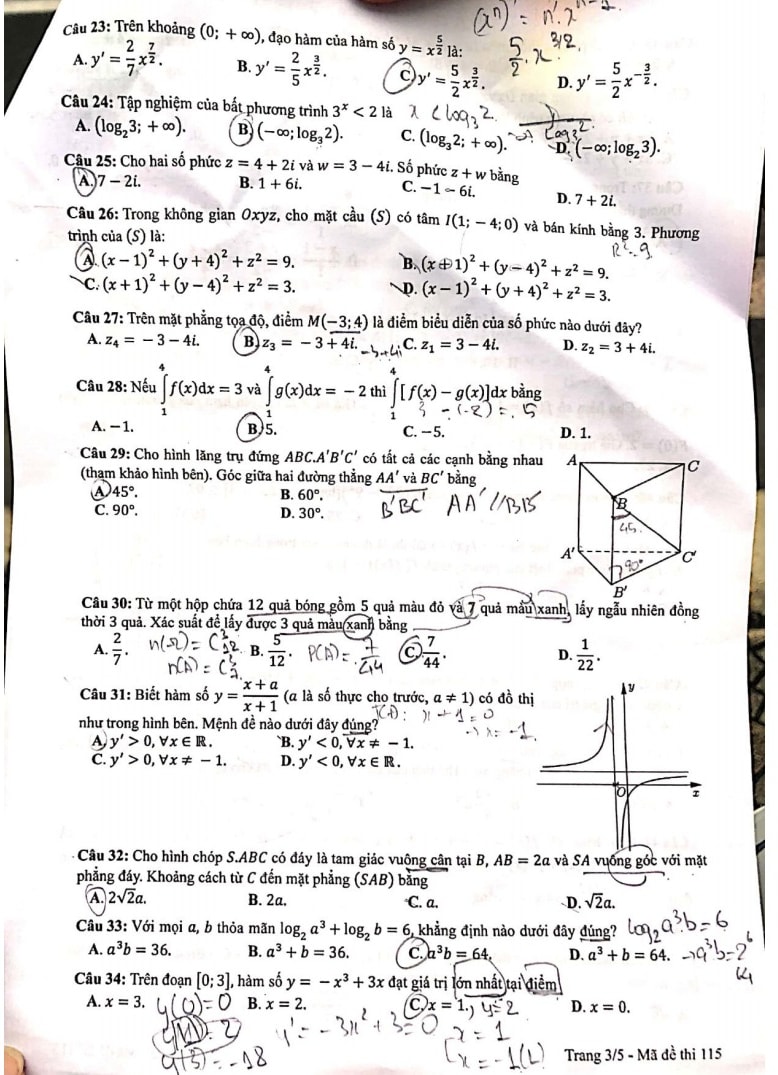 (xⁿ)' = n.xⁿ⁻¹.
Câu 23: Trên khoảng (0; +∞), đạo hàm của hàm số y = x^(5/2) là:
5/2 . x^(3/2).
A. y' = 2/7 x^(7/2). B. y' = 2/5 x^(3/2). C. y' = 5/2 x^(3/2). D. y' = 5/2 x^(-3/2).
Câu 24: Tập nghiệm của bất phương trình 3ˣ < 2 là x < log₃2.
A. (log₂3; +∞). B. (−∞; log₃2). C. (log₃2; +∞). D. (−∞; log₂3).
log₃2.
Câu 25: Cho hai số phức z = 4 + 2i và w = 3 − 4i. Số phức z + w bằng
A. 7 − 2i. B. 1 + 6i. C. −1 − 6i. D. 7 + 2i.
Câu 26: Trong không gian Oxyz, cho mặt cầu (S) có tâm I(1; −4; 0) và bán kính bằng 3. Phương
trình của (S) là: R² = 9
A. (x − 1)² + (y + 4)² + z² = 9. B. (x + 1)² + (y − 4)² + z² = 9.
C. (x + 1)² + (y − 4)² + z² = 3. D. (x − 1)² + (y + 4)² + z² = 3.
Câu 27: Trên mặt phẳng tọa độ, điểm M(−3; 4) là điểm biểu diễn của số phức nào dưới đây?
A. z₄ = −3 − 4i. B. z₃ = −3 + 4i. −3+4i C. z₁ = 3 − 4i. D. z₂ = 3 + 4i.
Câu 28: Nếu ∫₁⁴ f(x)dx = 3 và ∫₁⁴ g(x)dx = −2 thì ∫₁⁴ [f(x) − g(x)]dx bằng
3 − (−2) = 5
A. −1. B. 5. C. −5. D. 1.
Câu 29: Cho hình lăng trụ đứng ABC.A'B'C' có tất cả các cạnh bằng nhau
(tham khảo hình bên). Góc giữa hai đường thẳng AA' và BC' bằng
A. 45°. B. 60°.
C. 90°. D. 30°.
B'BC' AA' // BB'
A C
B
45.
A' C'
90°
B'
Câu 30: Từ một hộp chứa 12 quả bóng gồm 5 quả màu đỏ và 7 quả màu xanh, lấy ngẫu nhiên đồng
thời 3 quả. Xác suất để lấy được 3 quả màu xanh bằng
A. 2/7. n(Ω) = C³₁₂ B. 5/12. P(A) = 7/44 C. 7/44. D. 1/22.
n(A) = C³₇
Câu 31: Biết hàm số y = (x + a)/(x + 1) (a là số thực cho trước, a ≠ 1) có đồ thị
như trong hình bên. Mệnh đề nào dưới đây đúng?
x + 1 = 0
→ x = −1
A. y' > 0, ∀x ∈ ℝ. B. y' < 0, ∀x ≠ −1.
C. y' > 0, ∀x ≠ −1. D. y' < 0, ∀x ∈ ℝ.
y
O x
Câu 32: Cho hình chóp S.ABC có đáy là tam giác vuông cân tại B, AB = 2a và SA vuông góc với mặt
phẳng đáy. Khoảng cách từ C đến mặt phẳng (SAB) bằng
A. 2√2a. B. 2a. C. a. D. √2a.
Câu 33: Với mọi a, b thỏa mãn log₂ a³ + log₂ b = 6, khẳng định nào dưới đây đúng? log₂a³.b = 6
A. a³b = 36. B. a³ + b = 36. C. a³b = 64. D. a³ + b = 64. → a³b = 2⁶
64
Câu 34: Trên đoạn [0; 3], hàm số y = −x³ + 3x đạt giá trị lớn nhất tại điểm
A. x = 3. y(0) = 0 B. x = 2. C. x = 1. y = 2 D. x = 0.
y(1) = 2 y' = −3x² + 3 = 0 x = 1
y(3) = −18 x = −1 (L)
Trang 3/5 - Mã đề thi 115